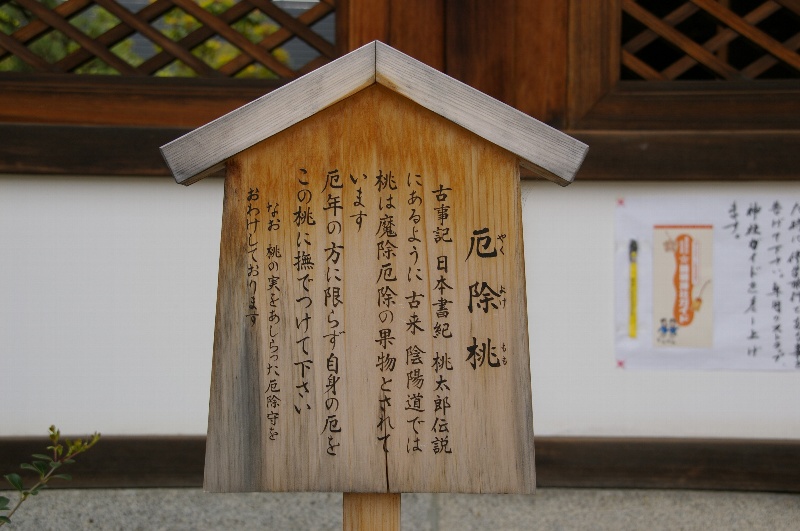 厄除桃
やくよけもも
古事記 日本書紀 桃太郎伝説
にあるように 古来 陰陽道では
桃は魔除厄除の果物とされて
います
厄年の方に限らず自身の厄を
この桃に撫でつけて下さい
なお 桃の実をあしらった厄除守を
おわけしております
神社ガイドを差し上げ
ます。